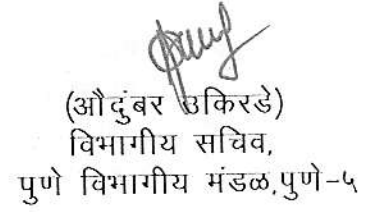 (औदुंबर उकिरडे)
विभागीय सचिव,
पुणे विभागीय मंडळ,पुणे-५